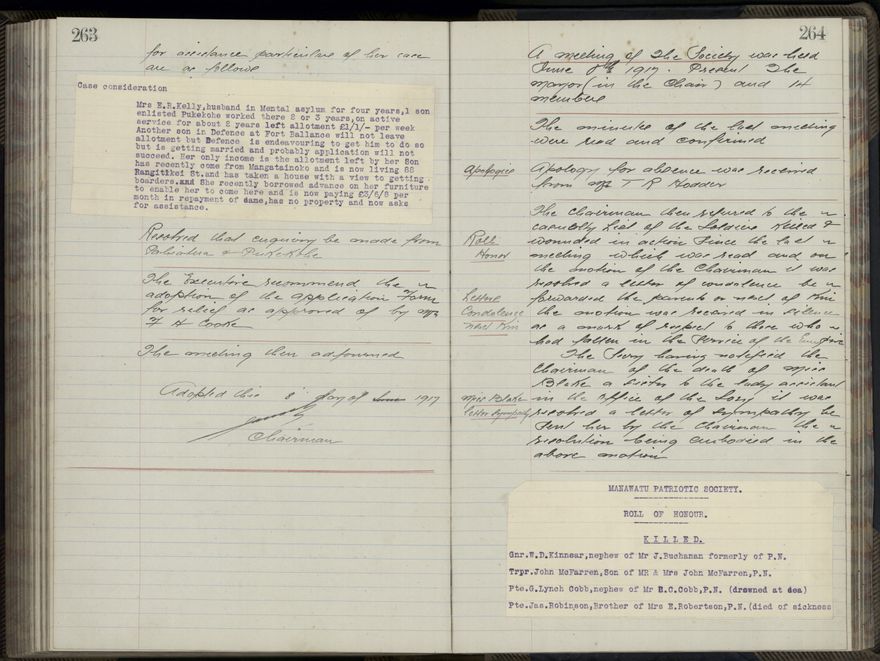 263
for assistance particulars of her case
are as follows
Case consideration
Mrs E.R.Kelly,husband in Mental asylum for four years,1 son
enlisted Pukekohe worked there 2 or 3 years,on active
service for about 2 years left allotment £1/1/- per week
Another son in Defence at Fort Ballance will not leave
allotment but Defence is endeavouring to get him to do so
but is getting married and probably application will not
succeed. Her only income is the allotment left by her Son
has recently come from Mangatainoko and is now living 88
Rangitikei St.and has taken a house with a view to getting
boarders.and She recently borrowed advance on her furniture
to enable her to come here and is now paying £3/6/8 per
month in repayment of same,has no property and now asks
for assistance.
Resolved that enquiry be made from
Pahiatua & Pukekohe
The Executive recommend the
adoption of the application Form
for relief as approved of by Mr
F H Cooke
The meeting then adjourned
Adopted this 8 day of June 1917
Chairman
264
A meeting of the Society was held
June 8th 1917. Present The
Mayor (in the Chair) and 14
members
The minutes of the last meeting
were read and confirmed
Apologies
Apology for absence was received
from Mr T R Hodder
Roll
Honor
The Chairman then referred to the
casualty list of the Soldiers killed &
wounded in action since the last
meeting which was read and on
the motion of the Chairman it was
resolved a letter of condolence be
Letter
Condolence
next Kin
forwarded the parents or next of Kin
the motion was received in silence
as a mark of respect to those who
had fallen in the service of the Empire
The Secy having notified the
Chairman of the death of Miss
Blake a sister to the lady assistant
Miss Blake
letter sympathy
in the office of the Secy it was
resolved a letter of sympathy be
sent her by the Chairman the
resolution being embodied in the
above motion
MANAWATU PATRIOTIC SOCIETY.
ROLL OF HONOUR.
KILLED.
Gnr.W.D.Kinnear,nephew of Mr J.Buchanan formerly of P.N.
Trpr.John McFarren,Son of MR & Mrs John McFarren,P.N.
Pte.G.Lynch Cobb,nephew of Mr B.C.Cobb,P.N. (drowned at sea)
Pte.Jas.Robinson,Brother of Mrs E.Robertson,P.N.(died of sickness